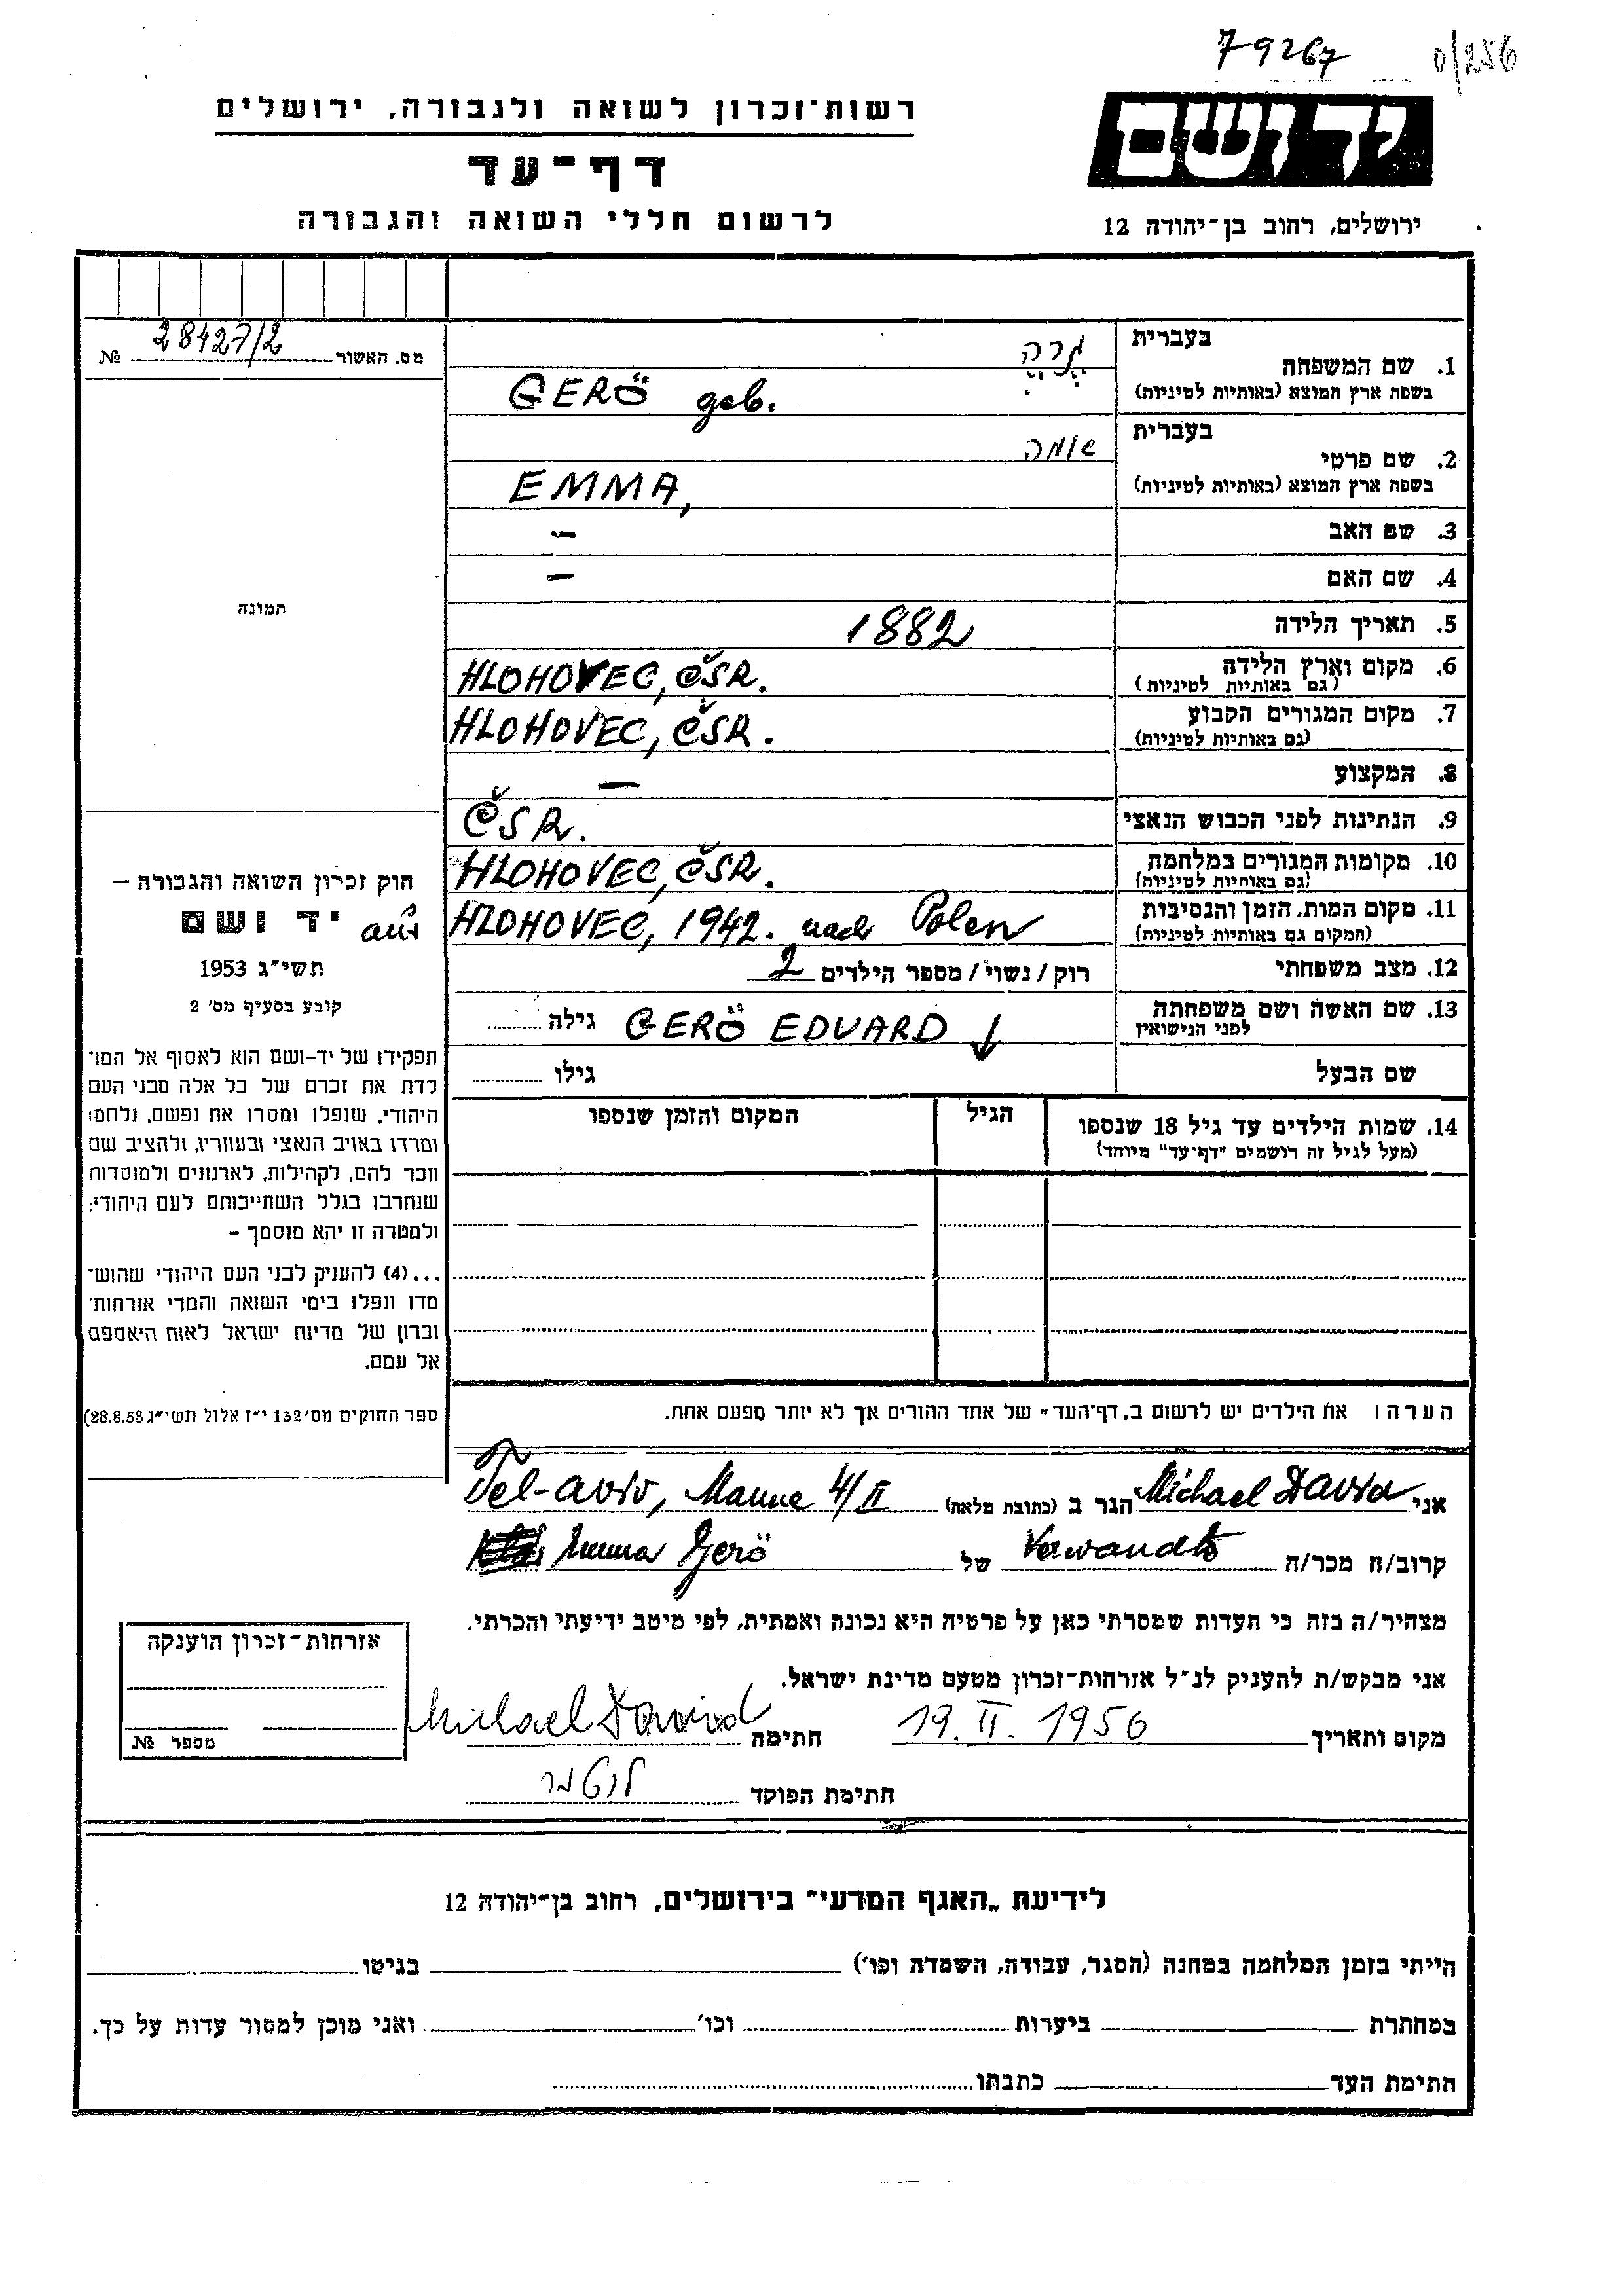 79267 0/256
רשות־זכרון לשואה ולגבורה, ירושלים
יד ושם
דף־עד
לרשום חללי השואה והגבורה
ירושלים, רחוב בן־יהודה 12
מס. האשור № 28427/2
בעברית
1. שם המשפחה
בשפת ארץ המוצא (באותיות לטיניות) GERÖ geb.
בעברית
2. שם פרטי
בשפת ארץ המוצא (באותיות לטיניות) EMMA,
3. שם האב –
4. שם האם –
תמונה
5. תאריך הלידה 1882
6. מקום וארץ הלידה HLOHOVEC, ČSR.
(גם באותיות לטיניות)
7. מקום המגורים הקבוע HLOHOVEC, ČSR.
(גם באותיות לטיניות)
8. המקצוע –
9. הנתינות לפני הכבוש הנאצי ČSR.
10. מקומות המגורים במלחמה HLOHOVEC, ČSR.
(גם באותיות לטיניות)
11. מקום המות, הזמן והנסיבות aus HLOHOVEC, 1942. nach Polen
(המקום גם באותיות לטיניות)
12. מצב משפחתי רוק / נשוי / מספר הילדים 2
13. שם האשה ושם משפחתה GERÖ EDUARD ↓ גילה
לפני הנישואין
שם הבעל גילו
14. שמות הילדים עד גיל 18 שנספו הגיל המקום והזמן שנספו
(מעל לגיל זה רושמים "דף־עד" מיוחד)
חוק זכרון השואה והגבורה –
יד ושם
תשי״ג 1953
קובע בסעיף מס' 2
תפקידו של יד-ושם הוא לאסוף אל המו־
לדת את זכרם של כל אלה מבני העם
היהודי, שנפלו ומסרו את נפשם, נלחמו
ומרדו באויב הנאצי ובעוזריו, ולהציב שם
וזכר להם, לקהילות, לארגונים ולמוסדות
שנחרבו בגלל השתייכותם לעם היהודי;
ולמטרה זו יהא מוסמך –
...(4) להעניק לבני העם היהודי שהוש־
מדו ונפלו בימי השואה והמרי אזרחות־
זכרון של מדינת ישראל לאות היאספם
אל עמם.
ספר החוקים מס' 132 י״ז אלול תשי״ג 28.8.53)
הערה: את הילדים יש לרשום ב„דף־העד" של אחד ההורים אך לא יותר מפעם אחת.
אני Michael David הגר ב (כתובת מלאה) Tel-aviv, Manne 4/II
קרוב/ה מכר/ה Verwandte של Emma Gerö
מצהיר/ה בזה כי העדות שמסרתי כאן על פרטיה היא נכונה ואמתית, לפי מיטב ידיעתי והכרתי.
אני מבקש/ת להעניק לנ״ל אזרחות־זכרון מטעם מדינת ישראל.
מקום ותאריך 19. II. 1956 חתימה Michael David
חתימת הפוקד
אזרחות־זכרון הוענקה
מספר №
לידיעת „האגף המדעי" בירושלים, רחוב בן־יהודה 12
הייתי בזמן המלחמה במחנה (הסגר, עבודה, השמדה וכו') בגיטו
במחתרת ביערות וכו' ואני מוכן למסור עדות על כך.
חתימת העד כתבתו